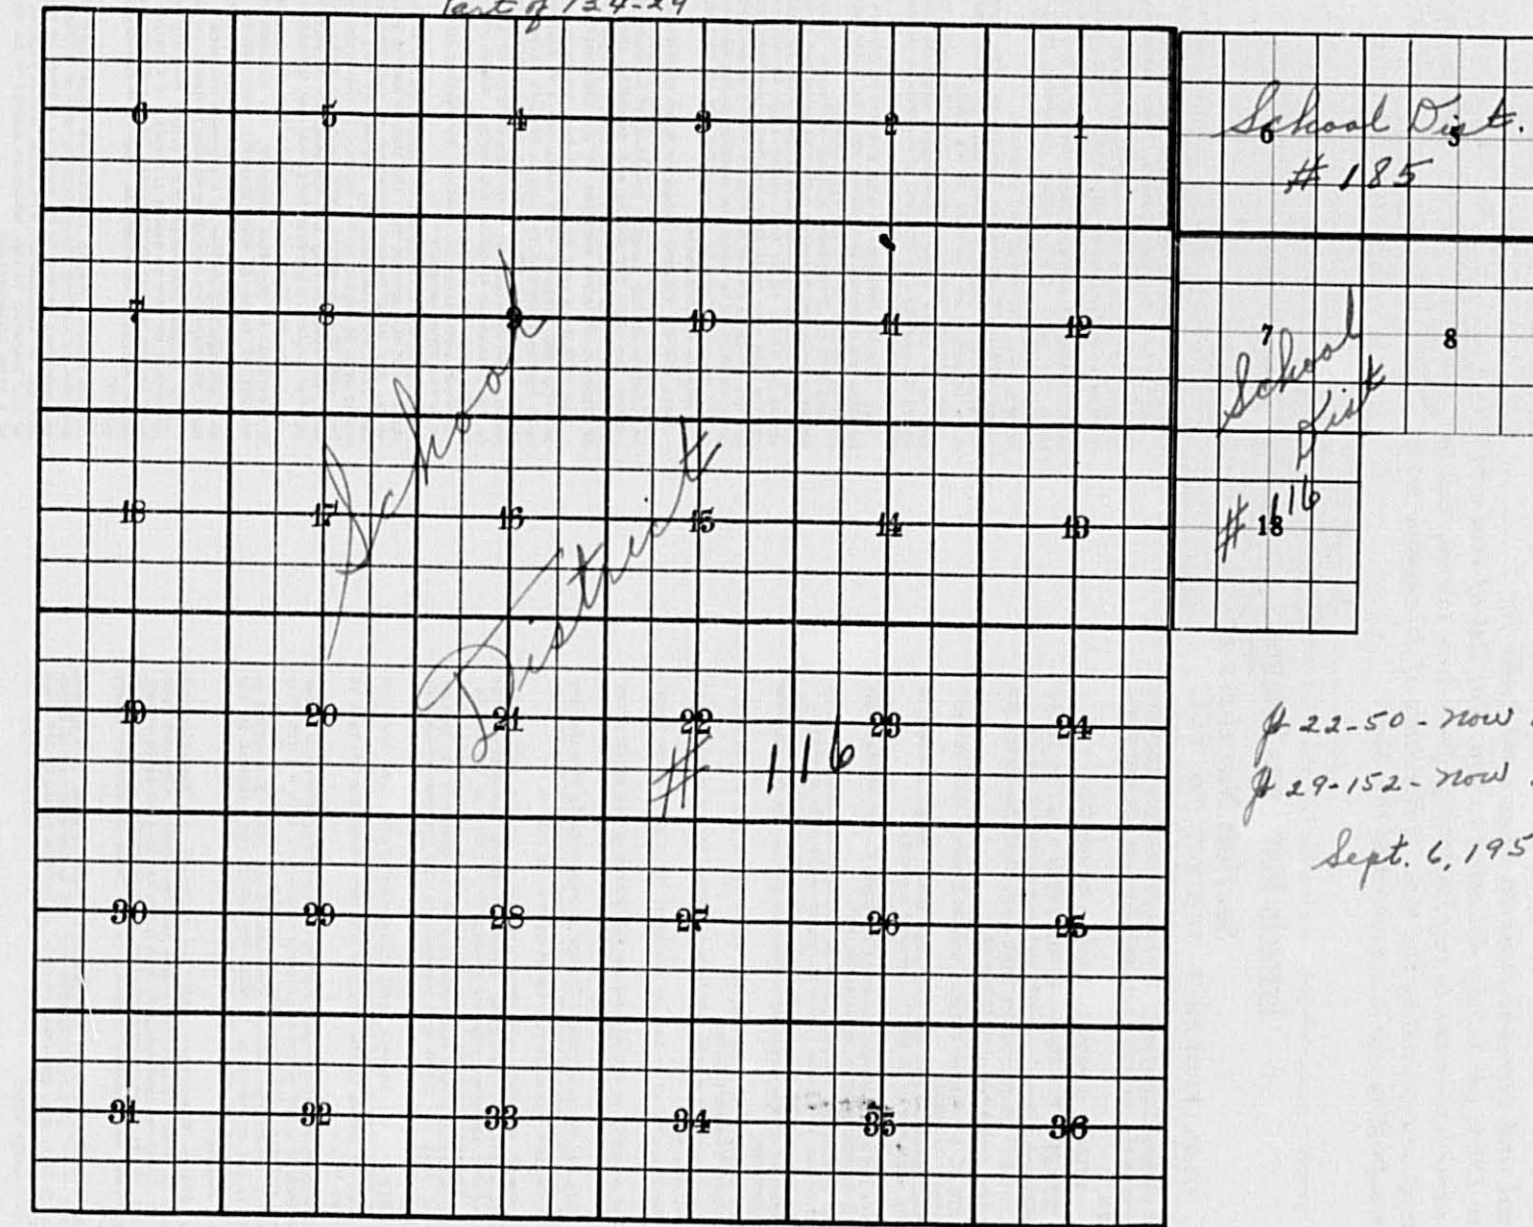 Part of 124-29
6 5 4 3 2 1
7 8 9 10 11 12
18 17 16 15 14 13
19 20 21 22 23 24
30 29 28 27 26 25
31 32 33 34 35 36
School
District
# 116
School Dist.
6 5
# 185
7 8
School
Dist
# 116
18
22-50 - now
29-152 - now
Sept. 6, 195